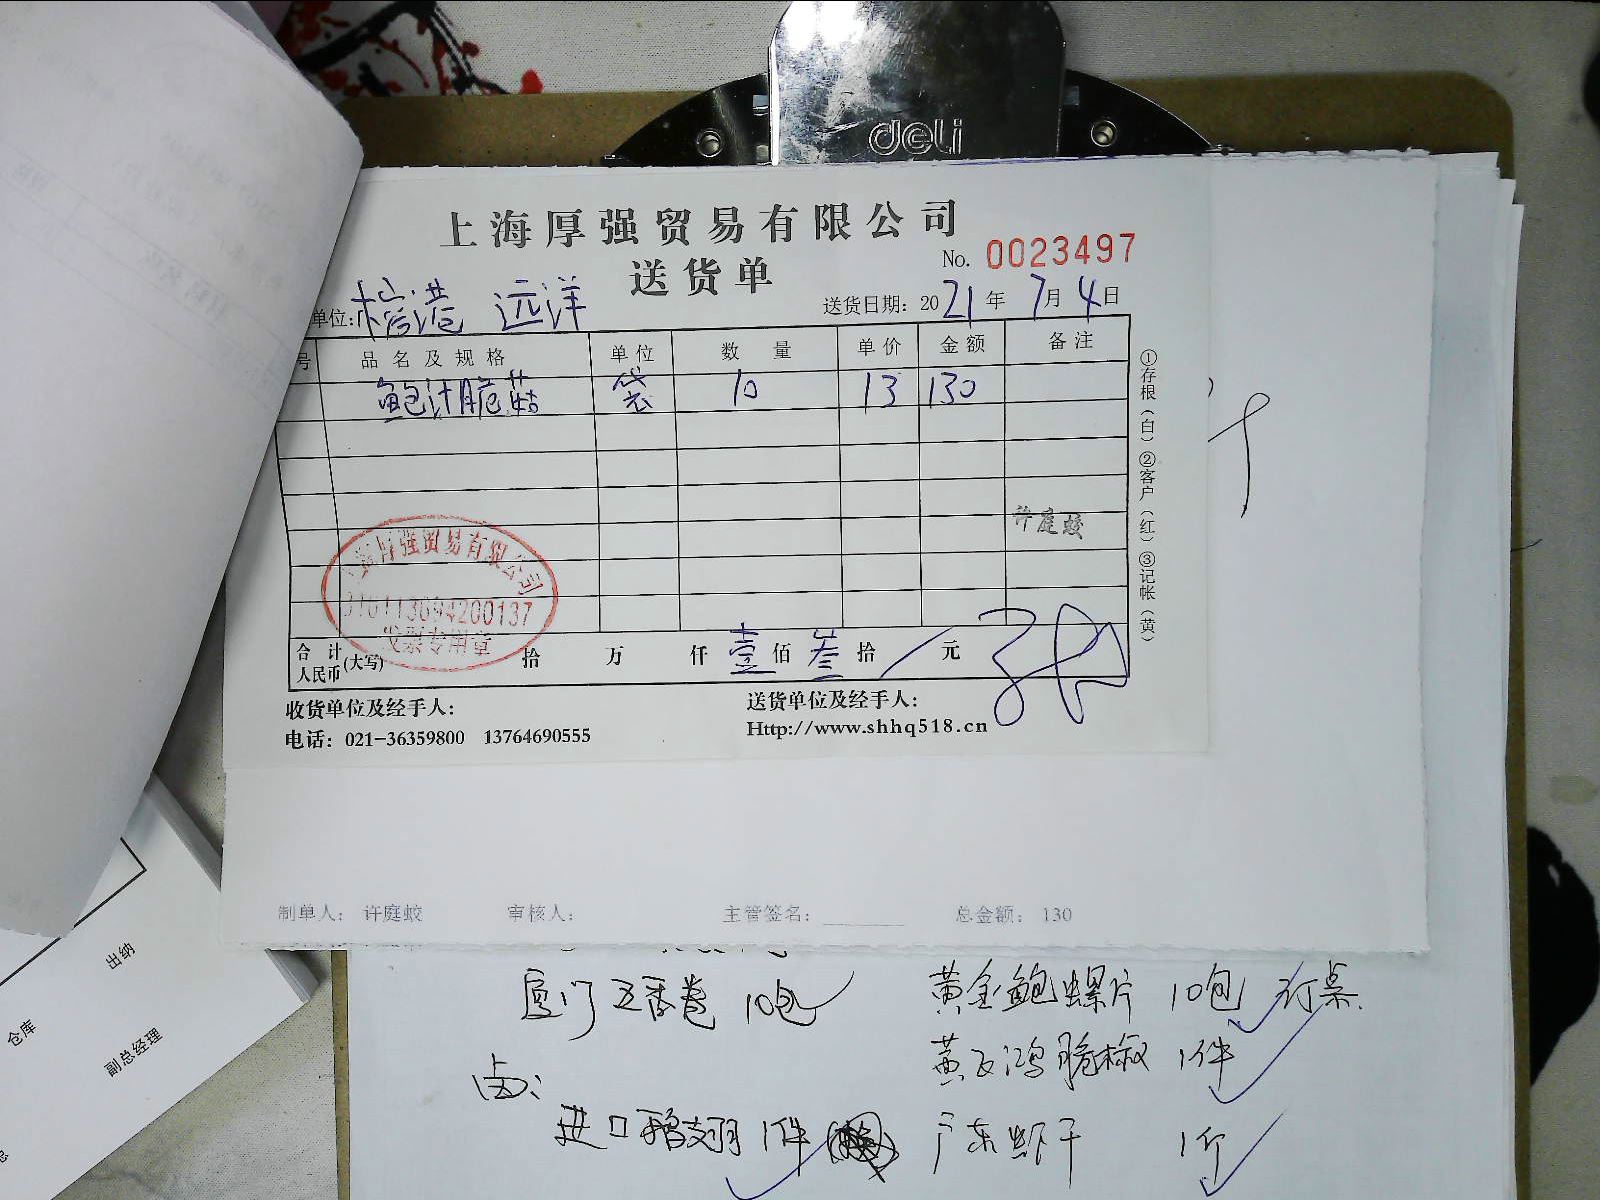 deli
上海厚强贸易有限公司
送货单
No. 0023497
单位: 榕港 远洋
送货日期: 2021年 7月 4日
号 品名及规格 单位 数量 单价 金额 备注
鲍汁脆菇 袋 10 13 130
许庭蛟
上海厚强贸易有限公司
发票专用章
合计人民币(大写) 拾 万 仟 壹 佰 叁 拾 元
收货单位及经手人:
送货单位及经手人:
电话: 021-36359800 13764690555
Http://www.shhq518.cn
①存根(白) ②客户(红) ③记帐(黄)
制单人: 许庭蛟 审核人: 主管签名: 总金额: 130
厦门五香卷 10包
黄金鲍螺片 10包
黄飞鸿脆椒 1件
卤:
进口 1件
广东虾干 1斤
出纳
仓库
副总经理